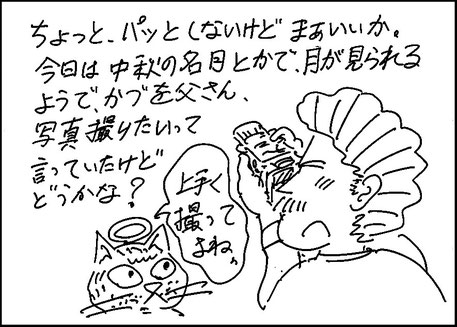 ちょっと、パッとしないけど まぁいいか。
今日は 中秋の名月とかで、月が見られる
ようで、かづを父さん、
写真撮りたいって
言っていたけど
どうかな？
上手く
撮って
よね。